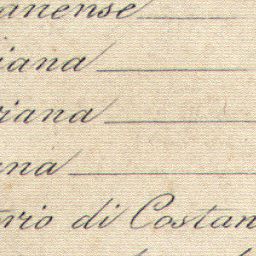 anense
iana
riana
ena
rio di Costan